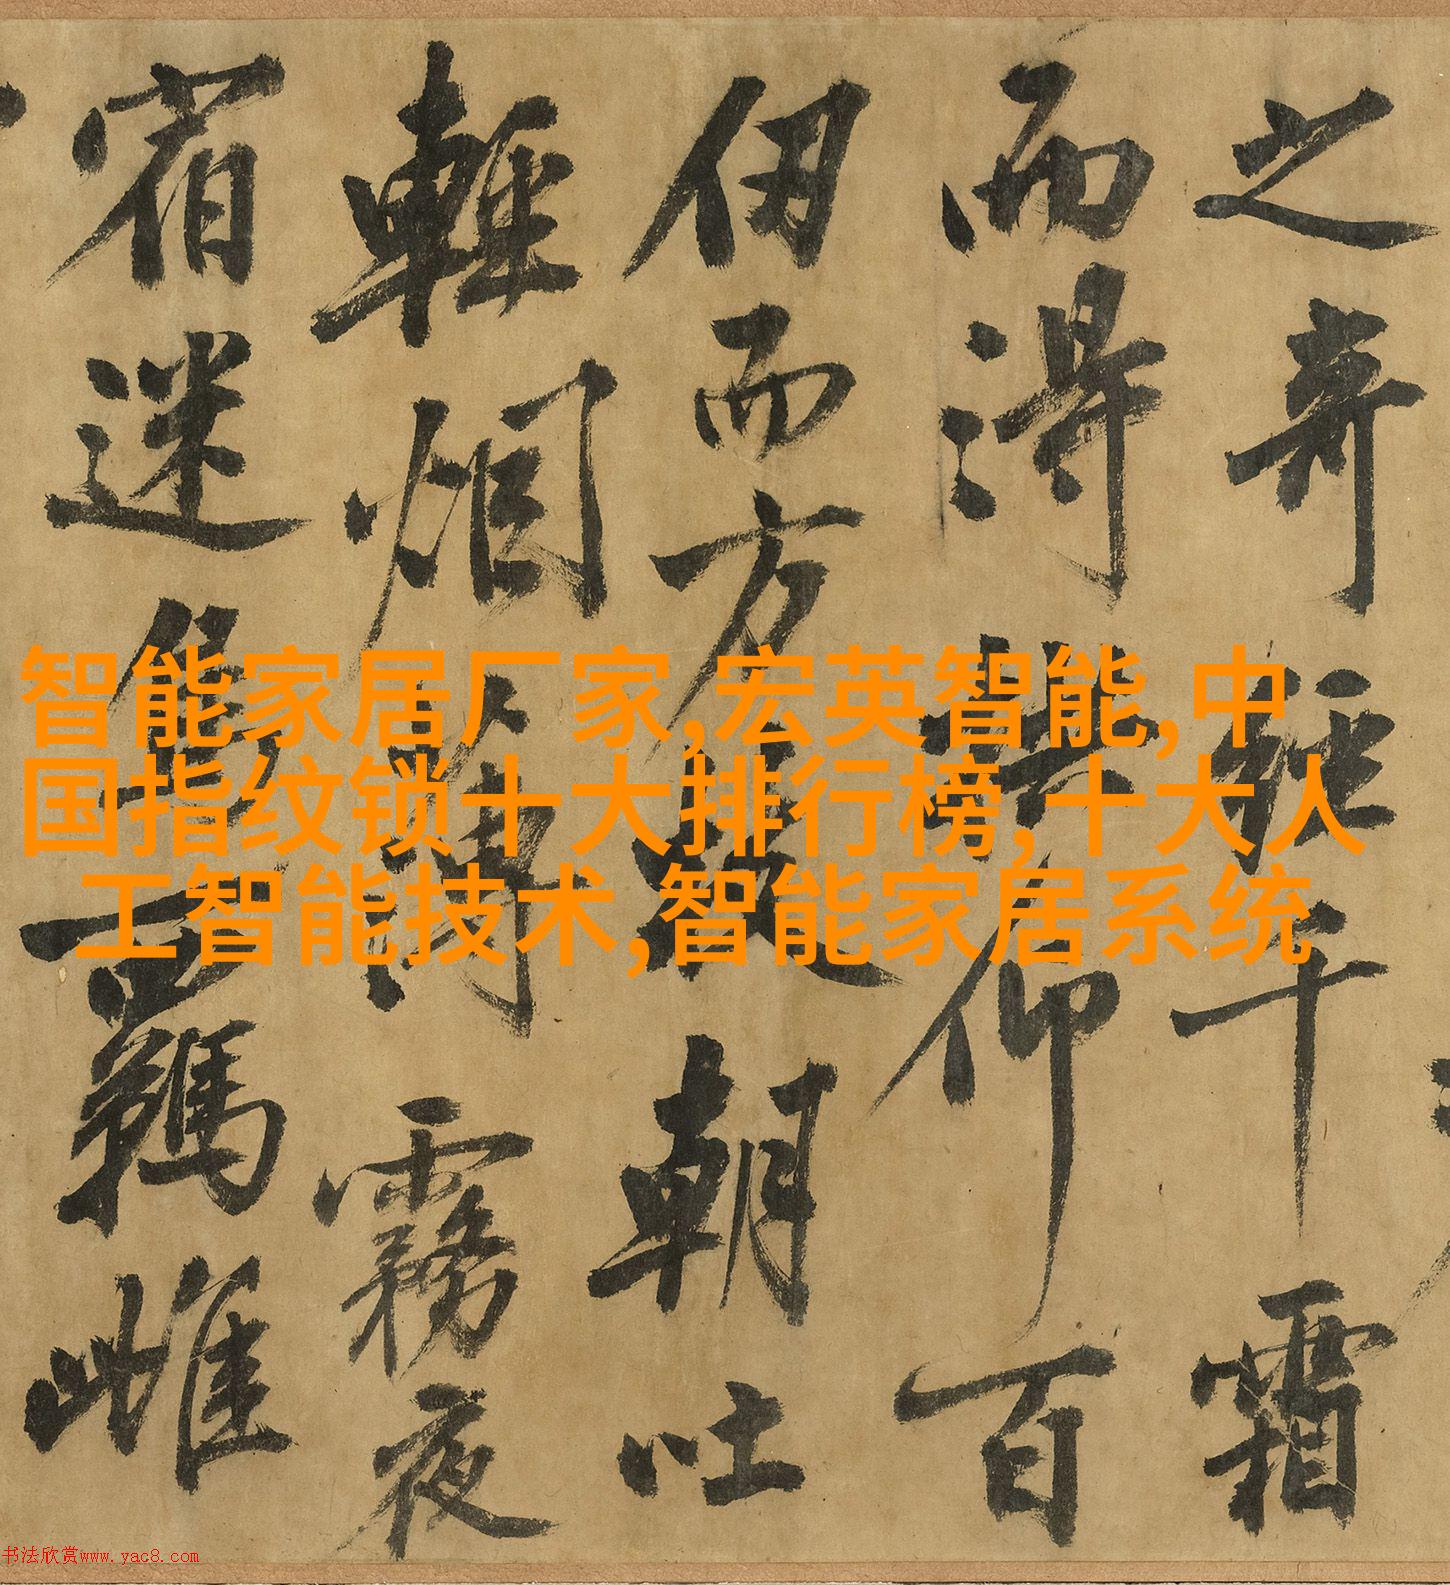 之奇經千霜
而得拱仰百
仞而方枝朝吐
輕烟薄霧夜
宿迷鳥羈雌
智能家居厂家,宏英智能,中
国指纹锁十大排行榜,十大人
工智能技术,智能家居系统
书法欣赏www.yac8.com